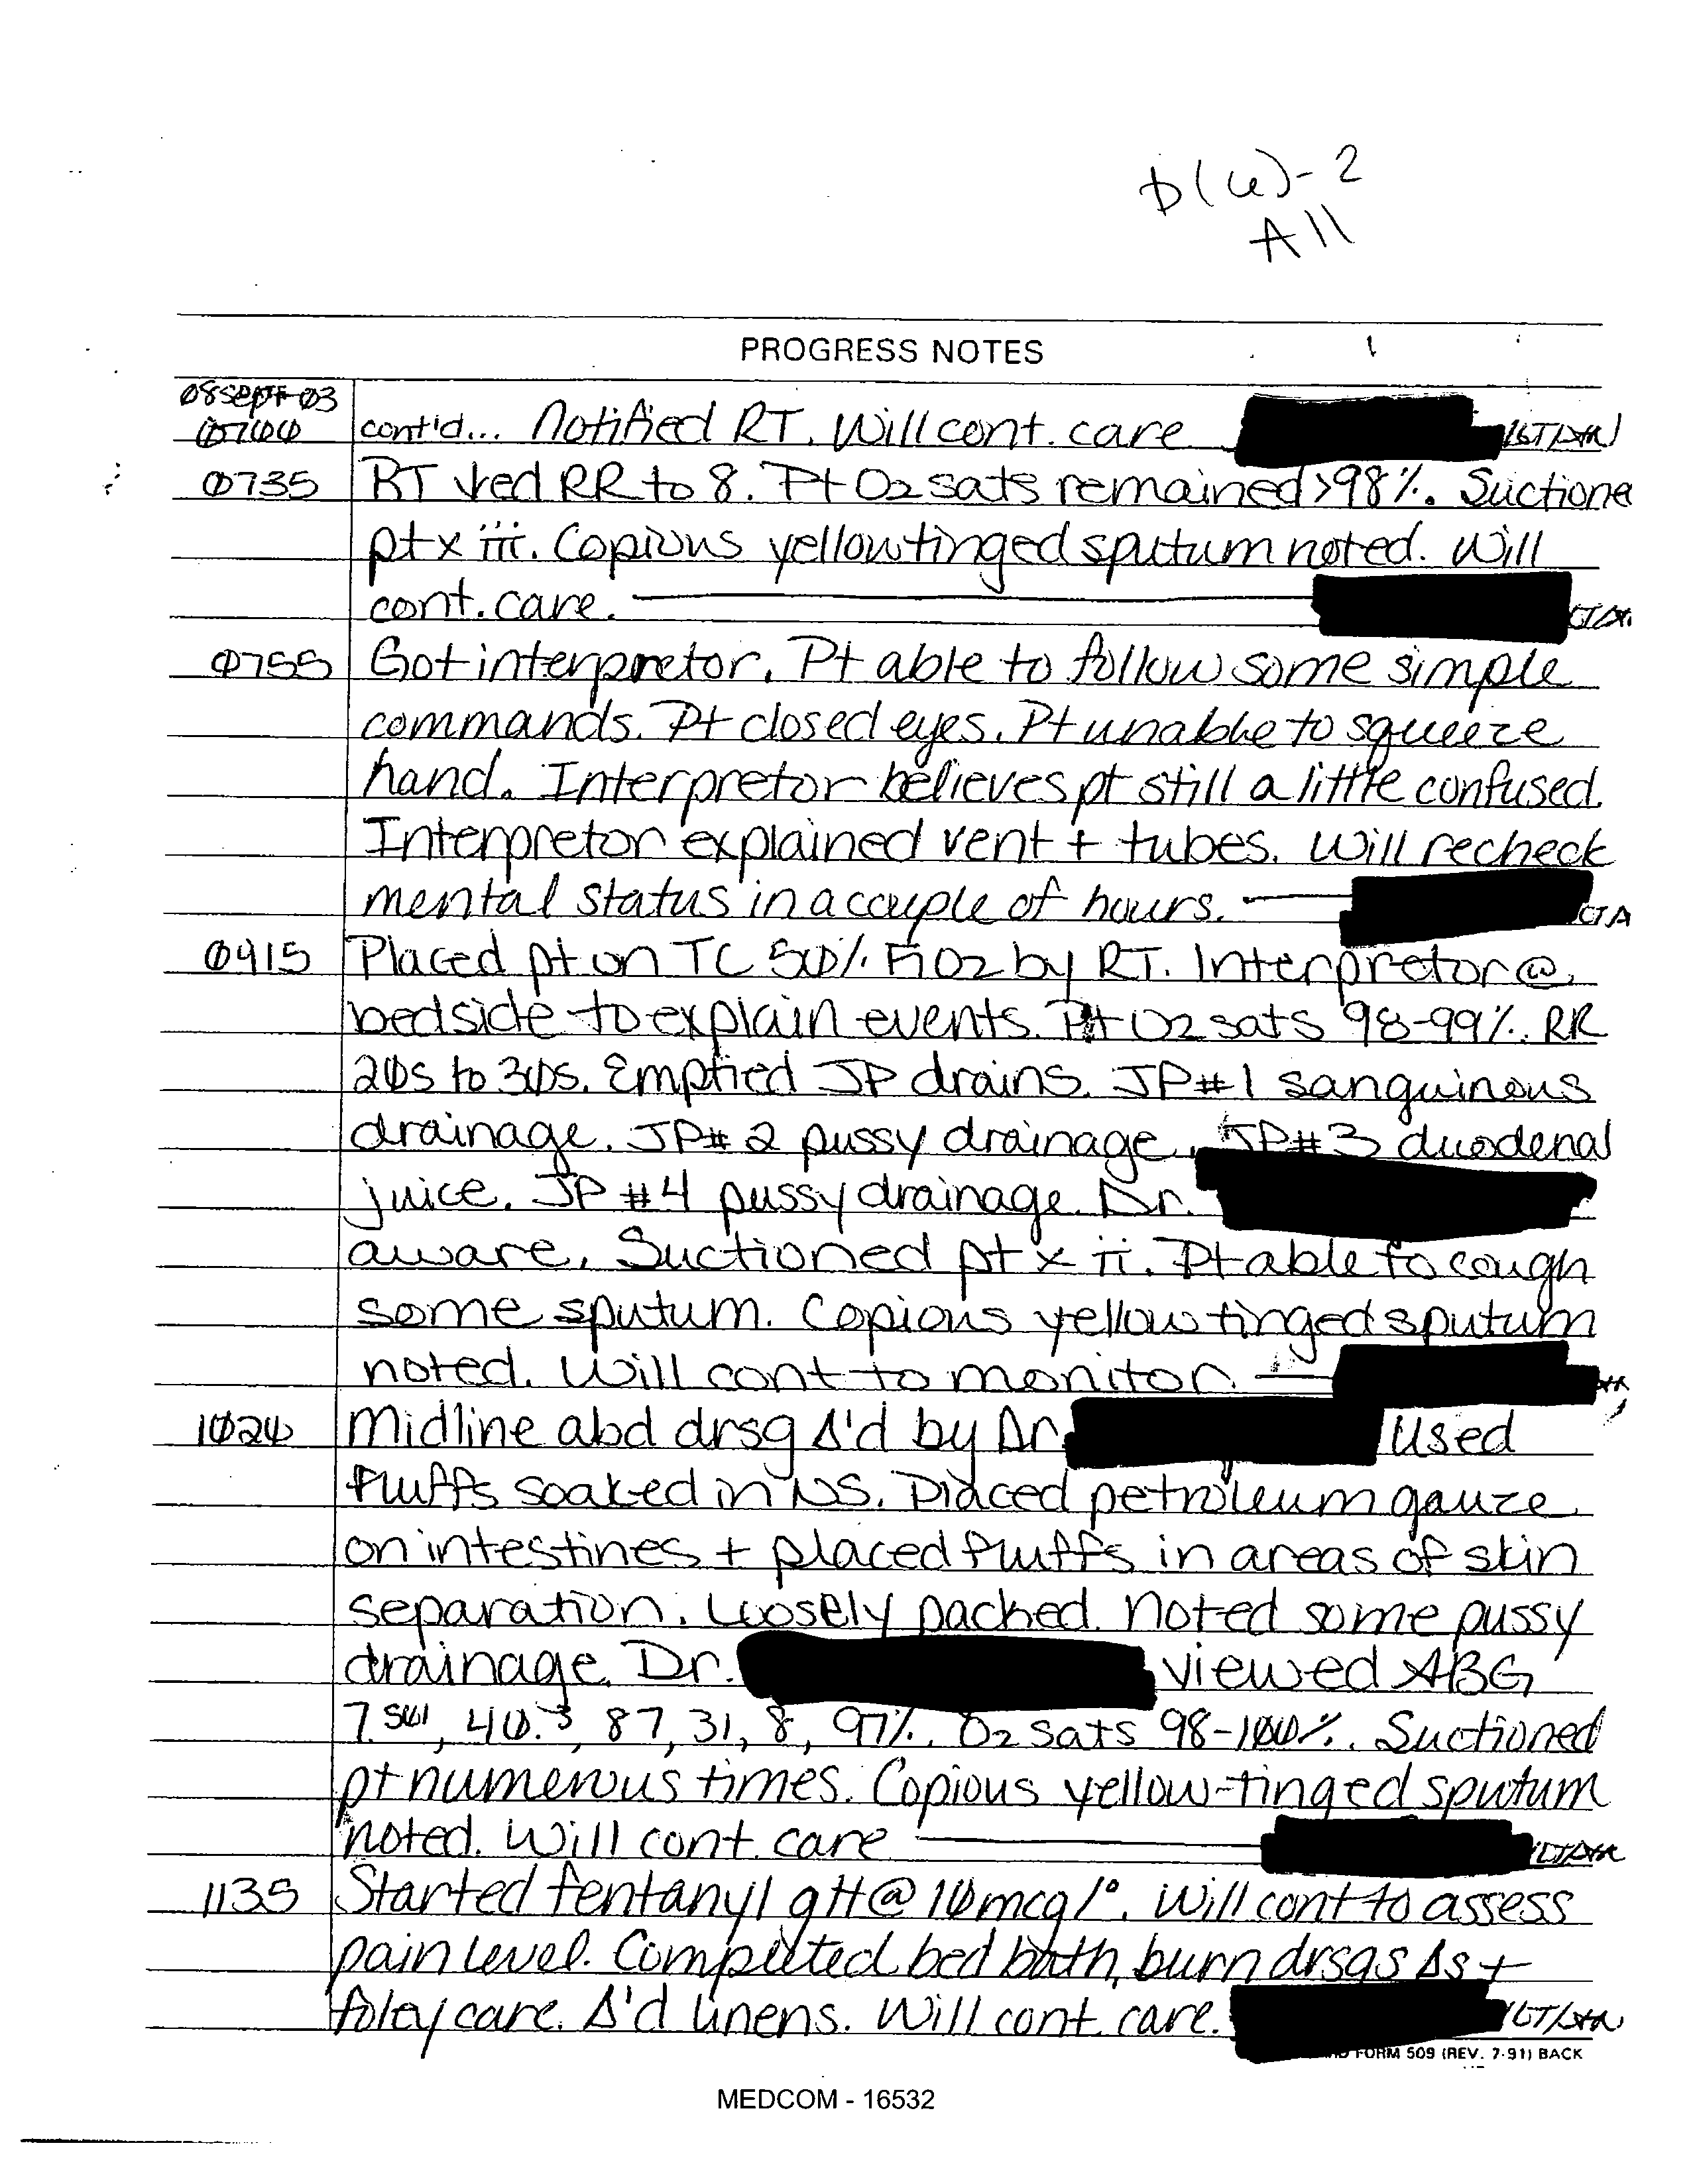 b(6)-2
All
PROGRESS NOTES
08SEPT03
0700 cont'd... Notified RT. Will cont. care 1LT/AN
0735 RT ↓ed RR to 8. Pt O2 sats remained >98%. Suctione
pt x iii. Copious yellow tinged sputum noted. Will
cont. care.
0755 Got interpretor. Pt able to follow some simple
commands. Pt closed eyes. Pt unable to squeeze
hand. Interpretor believes pt still a little confused.
Interpretor explained vent + tubes. Will recheck
mental status in a couple of hours.
0915 Placed pt on TC 50% FiO2 by RT. Interpretor @
bedside to explain events. Pt O2 sats 98-99%. RR
20s to 30s. Emptied JP drains. JP#1 sanguinous
drainage. JP#2 pussy drainage. JP#3 duodenal
juice. JP #4 pussy drainage. Dr.
aware. Suctioned pt x ii. Pt able to cough
some sputum. Copious yellow tinged sputum
noted. Will cont to monitor.
1020 Midline abd drsg Δ'd by Dr. Used
fluffs soaked in NS. Placed petroleum gauze
on intestines + placed fluffs in areas of skin
separation. Loosely packed. Noted some pussy
drainage. Dr. viewed ABG
7.501, 40.3, 87, 31, 8, 97%. O2 sats 98-100%. Suctioned
pt numerous times. Copious yellow-tinged sputum
noted. Will cont. care 1LT/AN
1135 Started fentanyl gtt @ 10mcg/°. Will cont to assess
pain level. Completed bed bath, burn drsgs Δs +
foley care. Δ'd linens. Will cont. care. 1LT/AN
FORM 509 (REV. 7-91) BACK
MEDCOM - 16532